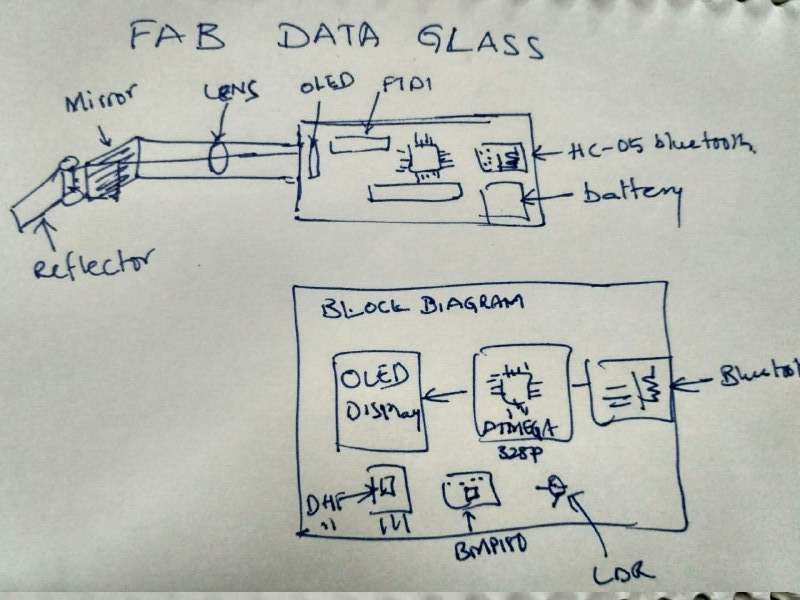 FAB DATA GLASS
Mirror
LENS
OLED
FTDI
HC-05 bluetooth
battery
Reflector
BLOCK DIAGRAM
OLED
Display
ATMEGA
328P
Bluetoot
DHF
11
BMP180
LDR